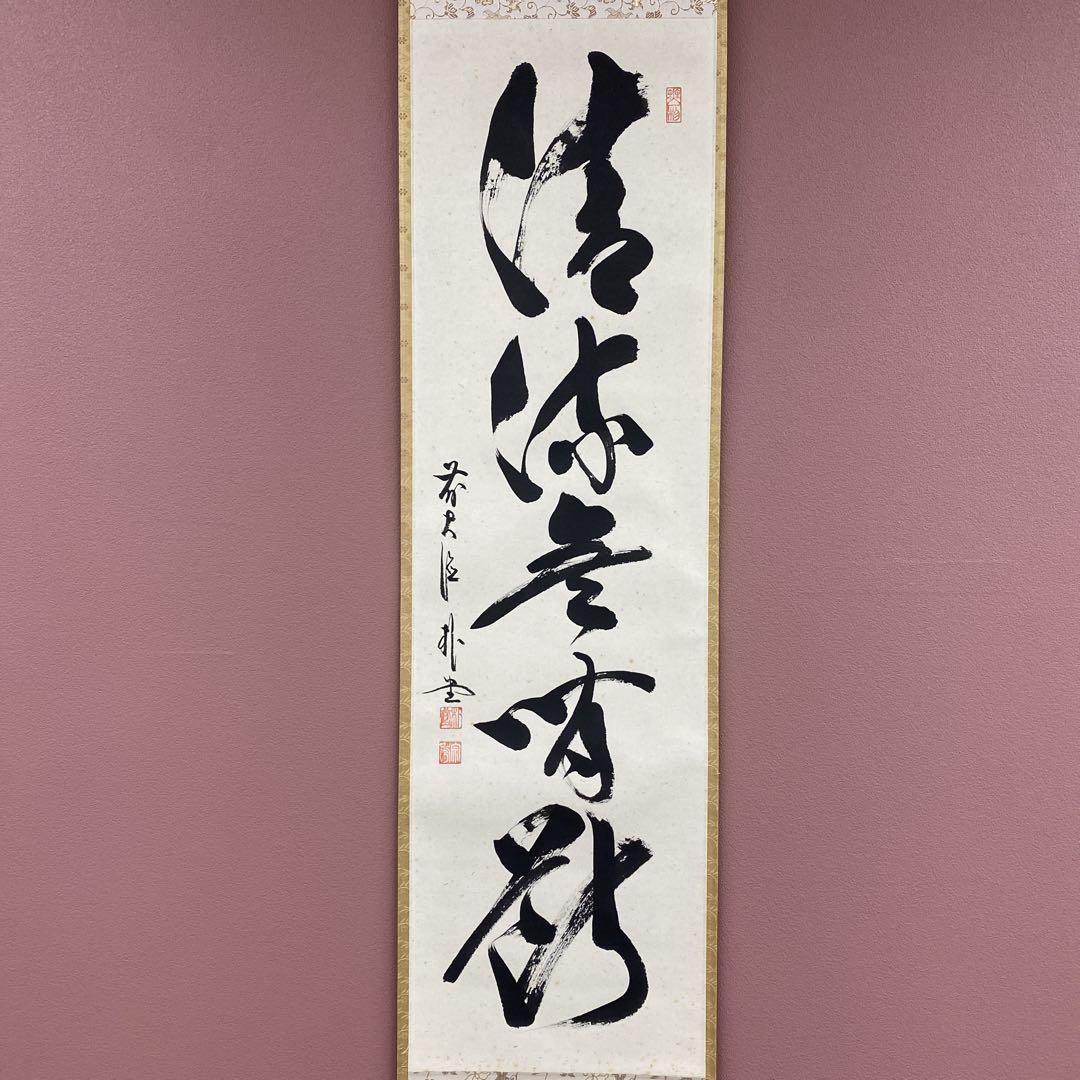 清流無間断
前大徳朴堂